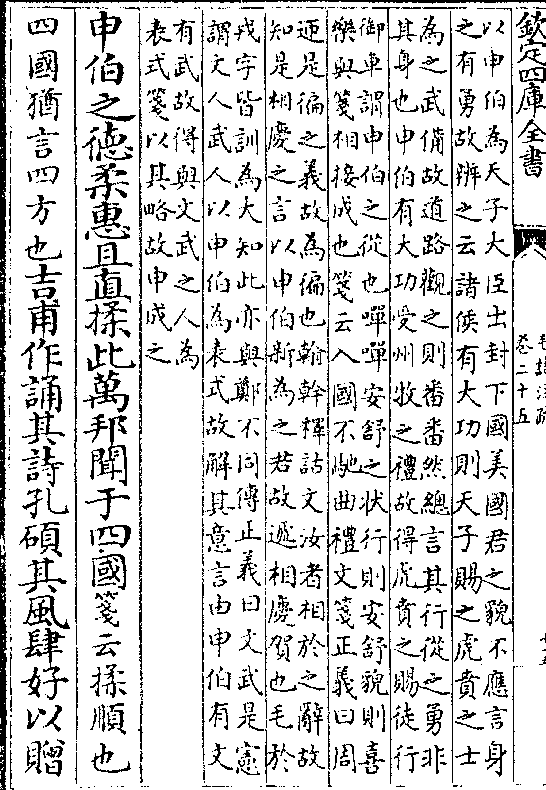 欽定四庫全書
卷二十五
以申伯為天子大臣出封下國美國君之貌不應言身
之有勇故辨之云諸侯有大功則天子賜之虎賁之士
為之武備故道路觀之則番番然總言其行從之勇非
其身也申伯有大功受州牧之禮故得虎賁之賜徒行
御車謂申伯之從也嘽嘽安舒之狀行則安舒貌則喜
樂與箋相接成也箋云入國不馳曲禮文箋正義曰周
迊是徧之義故為徧也翰幹釋詁文汝者相於之辭故
知是相慶之言以申伯新為之君故遞相慶賀也毛於
戎字皆訓為大知此亦與鄭不同傳正義曰文武是憲
謂文人武人以申伯為表式故解其意言由申伯有文
有武故得與文武之人為
表式箋以其略故申成之
申伯之德柔惠且直揉此萬邦聞于四國箋云揉順也
四國猶言四方也吉甫作誦其詩孔碩其風肆好以贈